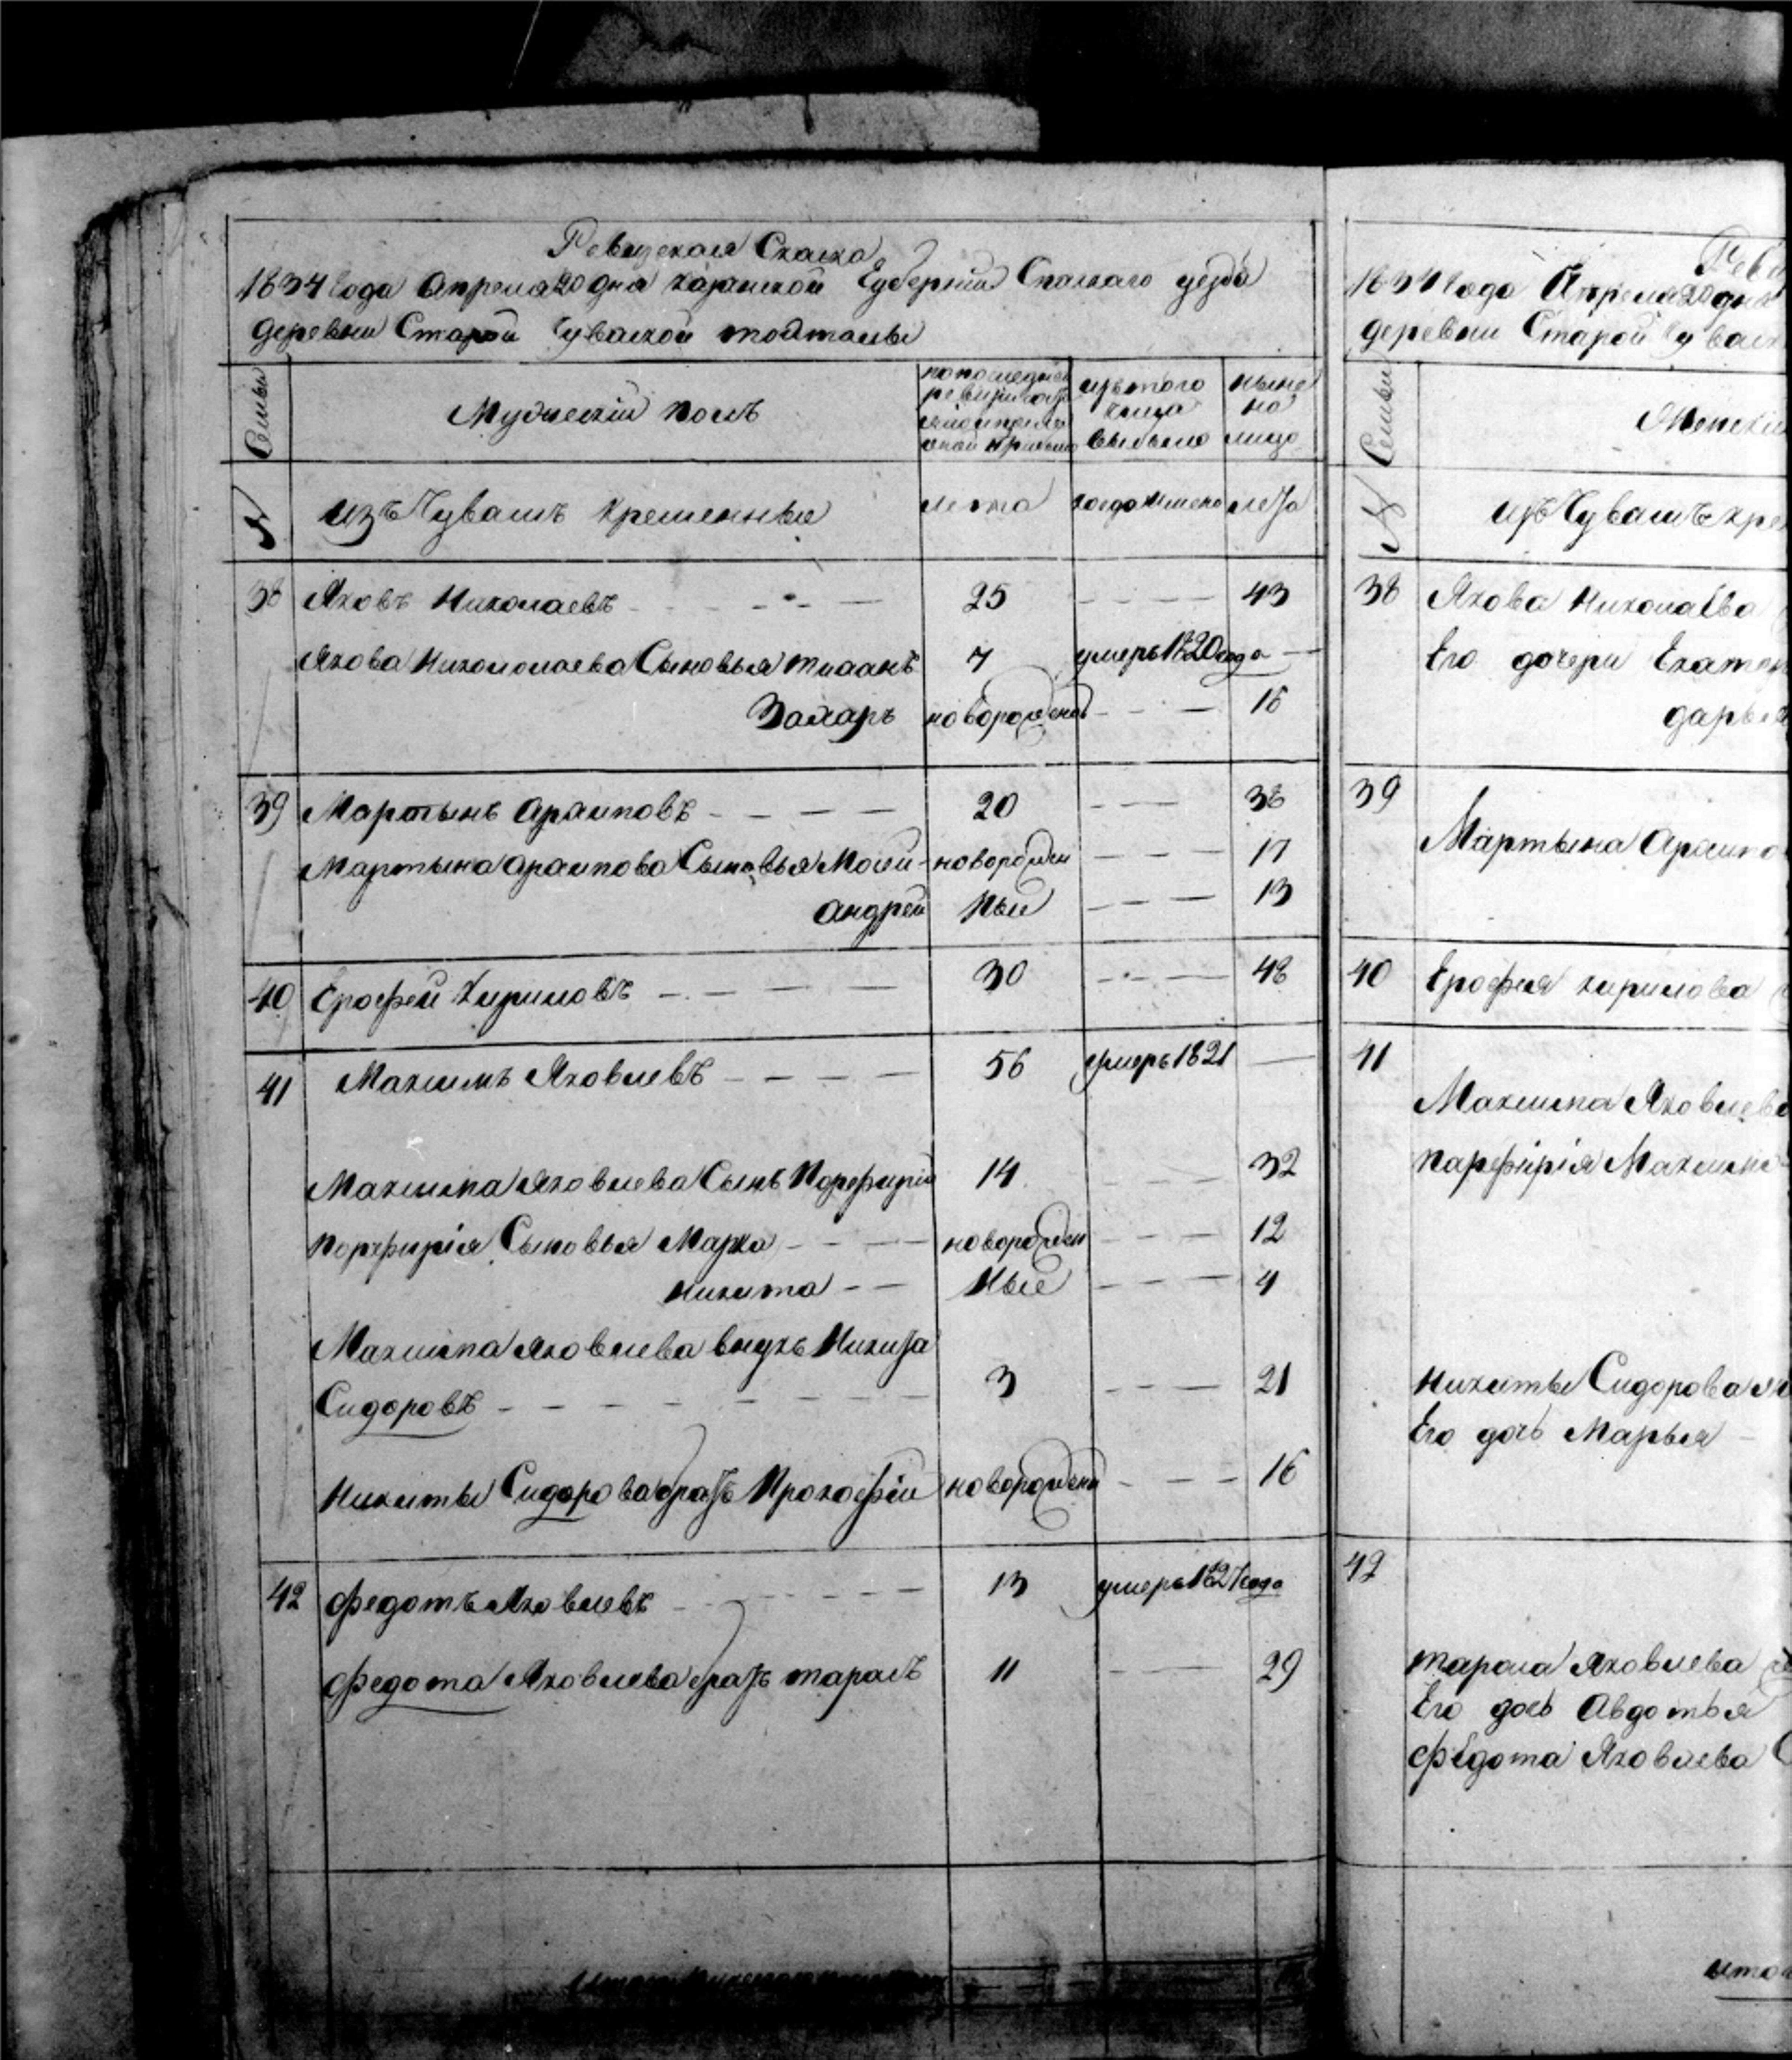 Ревизская Сказка
1834 года Апреля 20 дня казанской Губернии Спаскаго уезда
деревни Старой Чуваской майтаны
Семьи
Мужеский полъ
изъ того числа выбыло
ныне на лицо
№
изъ Чувашъ крещенные
лета
когда имено
лета
38 Яковъ Николаевъ 25 43
Якова Никололаева Сыновья 7 умеръ 1820 года
Захаръ новорожденой 16
39 Мартынъ Архиповъ 20 38
Мартына архипова Сыновья новорожден 17
андрей ные 13
40 Ерофей Кириловъ 30 48
41 Максимъ Яковлевъ 56 умеръ 1821
Максима Яковлева Сынъ Порфирий 14 32
порфирія Сыновья Марка новорожден 12
никита ные 4
Максима Яковлева внукъ Никита
Сидоровъ 3 21
Никиты Сидорова братъ Прокофій новорожден 16
42 федотъ Яковлевъ 13 умеръ 1827 года
федота Яковлева братъ тарасъ 11 29
Реви
1834 года Апреля 20 дня
деревни Старой Чувас
Семьи
Женски
№
изъ Чувашъ кре
38 Якова Николаева
Его дочери Екатер
дарья
39
Мартына Архипо
40 Ерофея кирилова
41
Максима Яковлева
парфирія Максимо
никиты Сидорова
Его дочь Марья
42
тараса Яковлева
Его дочь Авдотья
федота Яковлева
итог